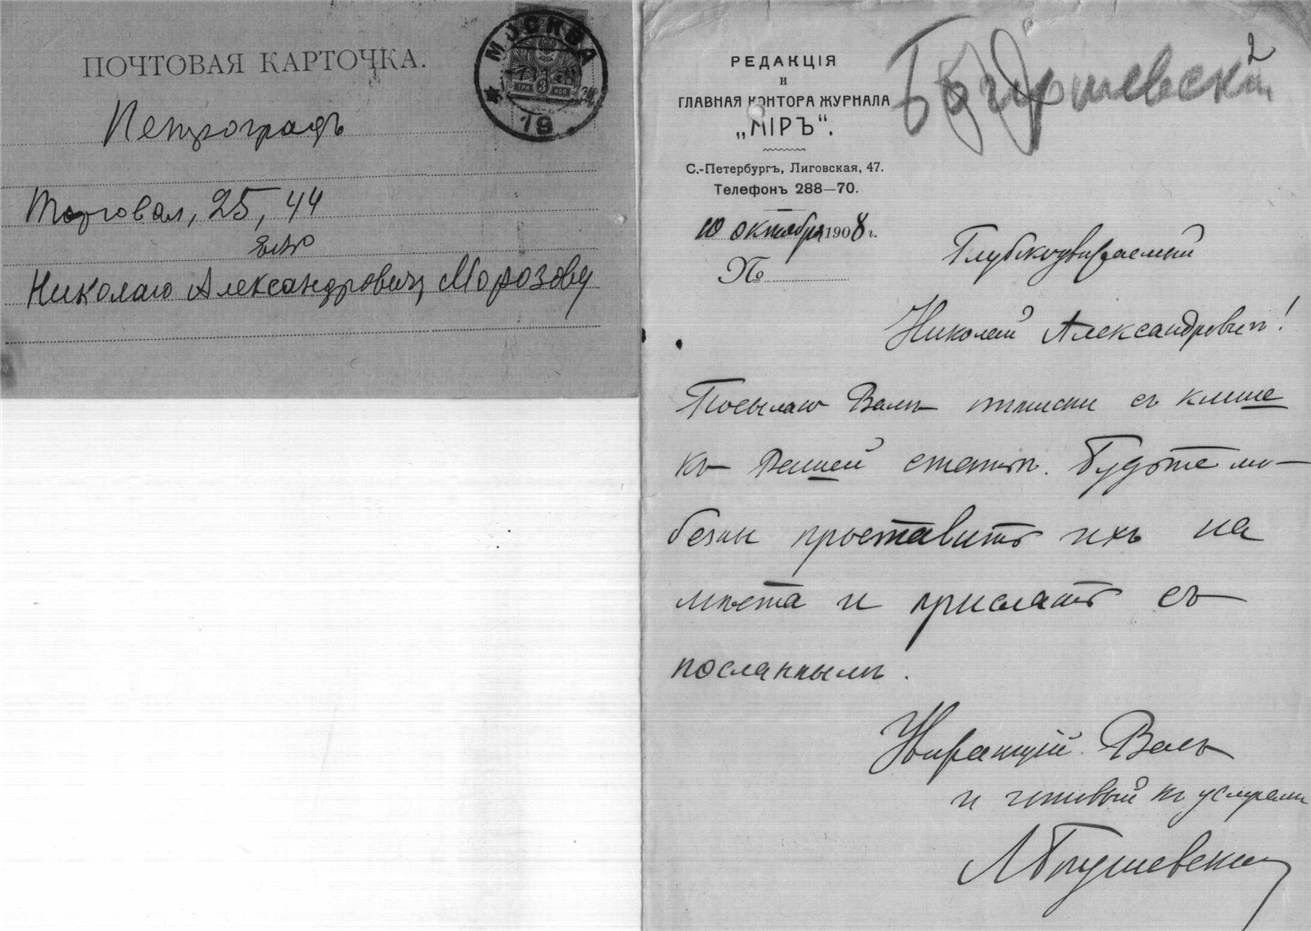 ПОЧТОВАЯ КАРТОЧКА.
МОСКВА
19
ТРИ 3 КОП
Петроградъ
Торговая, 25, 44
ЕВР
Николаю Александровичу Морозову
2
РЕДАКЦІЯ
И
ГЛАВНАЯ КОНТОРА ЖУРНАЛА
„МІРЪ“.
С.-Петербургъ, Лиговская, 47.
Телефонъ 288—70.
10 октября 1908 г.
№
Глубокоуважаемый
Николай Александровичъ!
Посылаю Вамъ оттиски съ клише
къ Вашей статьѣ. Будьте лю-
безны проставить ихъ на
мѣста и прислать съ
посланнымъ.
Уважающій Васъ
и готовый къ услугамъ